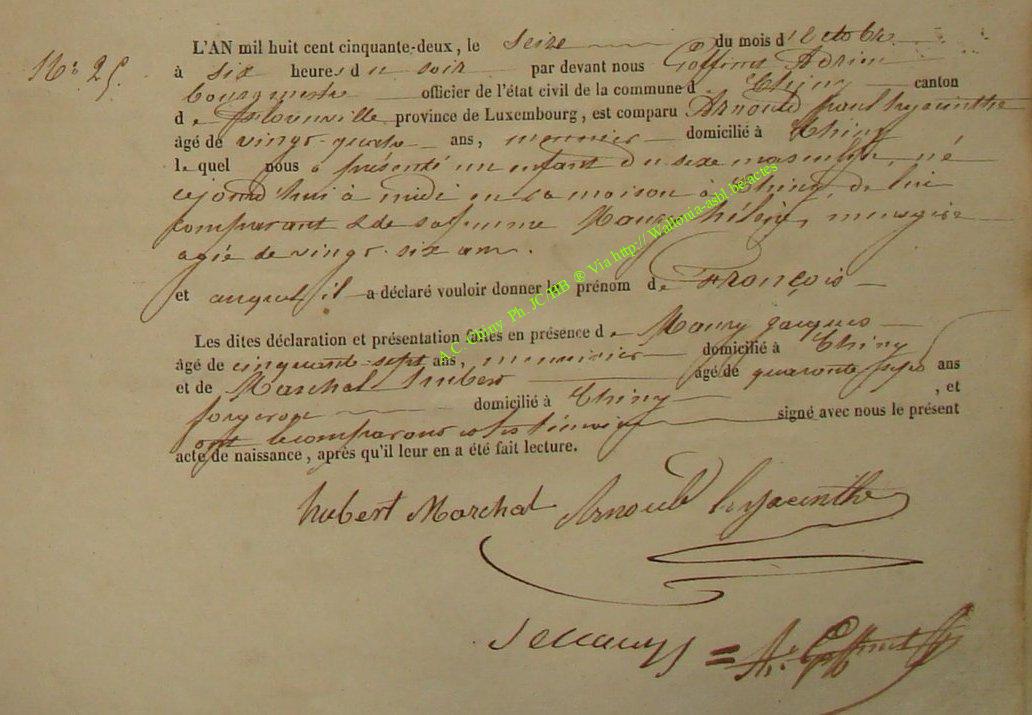 No. 25.
L'AN mil huit cent cinquante-deux, le Seize du mois d'Octobre
à Six heures du soir par devant nous Goffinet Adrien
bourgmestre officier de l'état civil de la commune d Chiny canton
de florenville province de Luxembourg, est comparu Arnould paul hyacinthe
âgé de vingt-quatre ans, domicilié à Chiny
lequel nous a présenté un enfant du sexe masculin, né
cejourd'hui à midi en sa maison à Chiny de lui
comparant & de sa femme Maury hélène, ménagère
agée de vingt-six ans.
et auquel il a déclaré vouloir donner le prénom de François
Les dites déclaration et présentation faites en présence de Maury Jacques
âgé de cinquante-sept ans, menuisier domicilié à Chiny
et de Marchal hubert âgé de quarante sept ans
forgeron domicilié à Chiny , et
ont le comparant et les témoins signé avec nous le présent
acte de naissance, après qu'il leur en a été fait lecture.
hubert Marchal Arnould hyacinthe
J Maury A. Goffinet
A.C. Chiny Ph. JC/BB ® Via http:// Wallonia-asbl be/actes